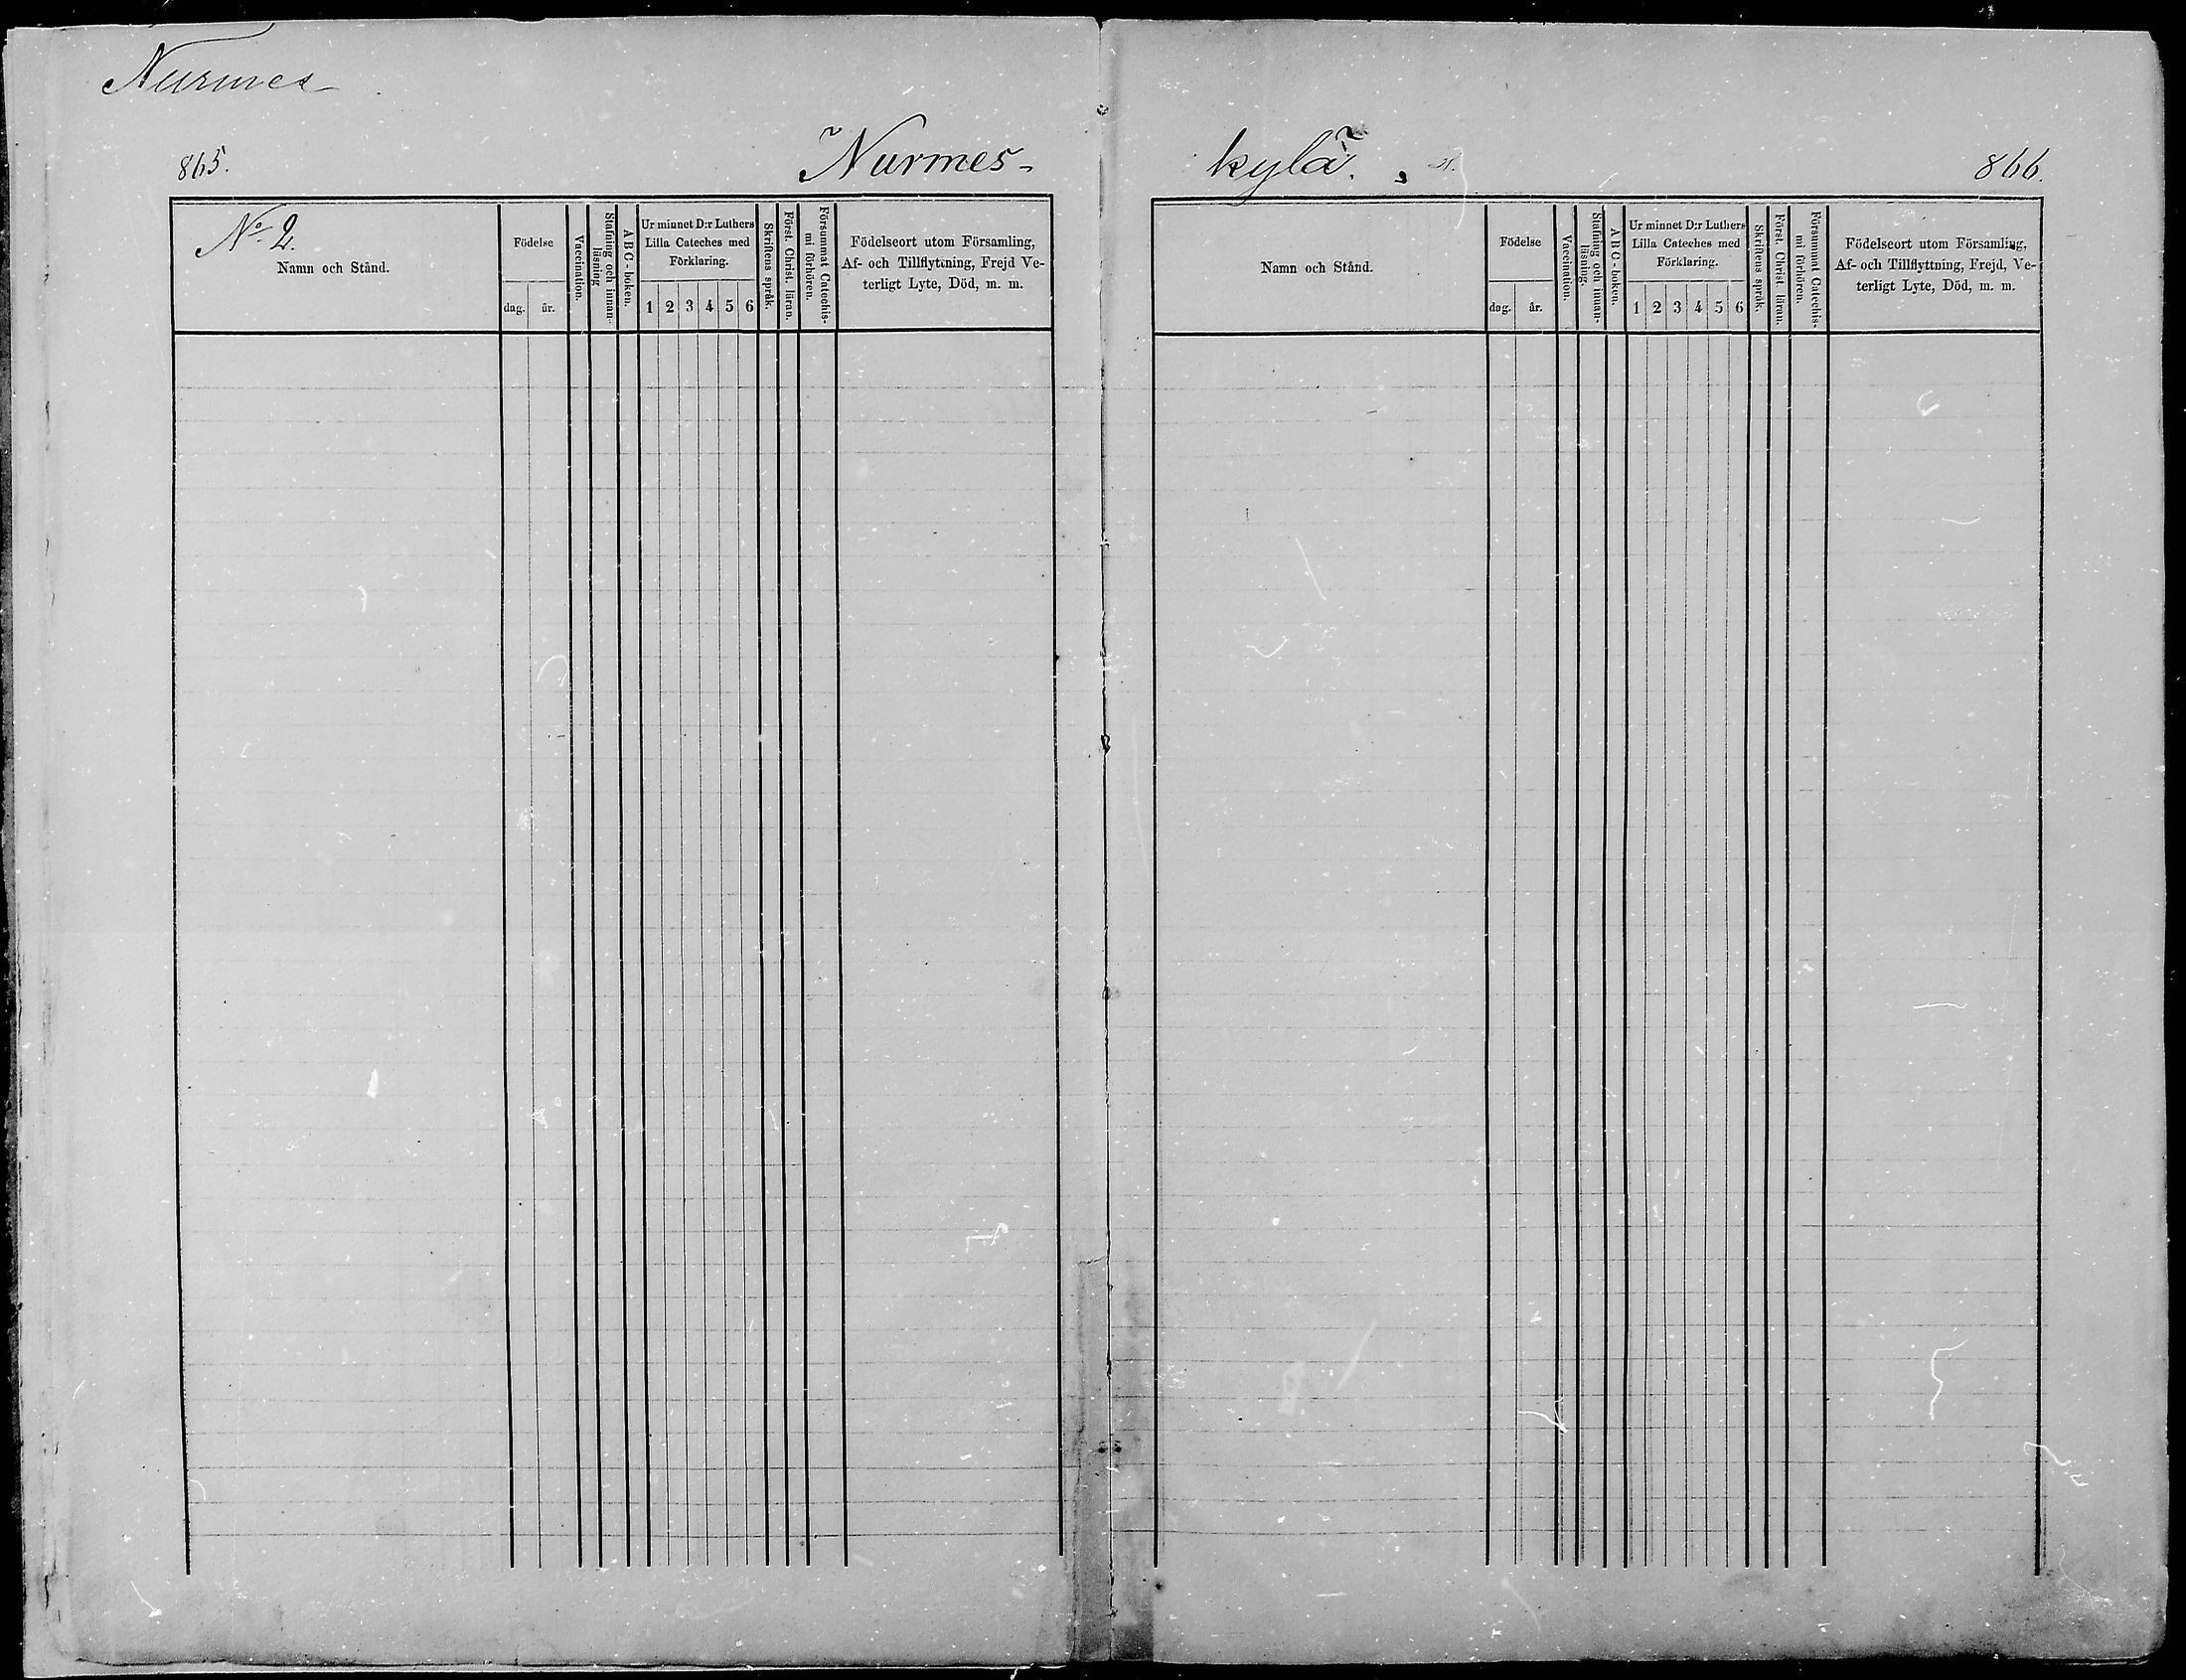 Nurmes
865.
Nurmes-
No 2.
Namn och Stånd.
Födelse
dag.
år.
Vaccination.
Stafning och innan-
läsning
A B C - boken.
Ur minnet D:r Luthers
Lilla Cateches med
Förklaring.
1 2 3 4 5 6
Skriftens språk.
Först. Christ. läran.
Försummat Catechis-
mi förhören.
Födelseort utom Församling,
Af- och Tillflyttning, Frejd Ve-
terligt Lyte, Död, m. m.
kylä.
866.
Namn och Stånd.
Födelse
dag.
år.
Vaccination.
Stafning och innan-
läsning.
A B C - boken.
Ur minnet D:r Luthers
Lilla Cateches med
Förklaring.
1 2 3 4 5 6
Skriftens språk.
Först. Christ. läran.
Försummat Catechis-
mi förhören.
Födelseort utom Församling,
Af- och Tillflyttning, Frejd, Ve-
terligt Lyte, Död, m. m.